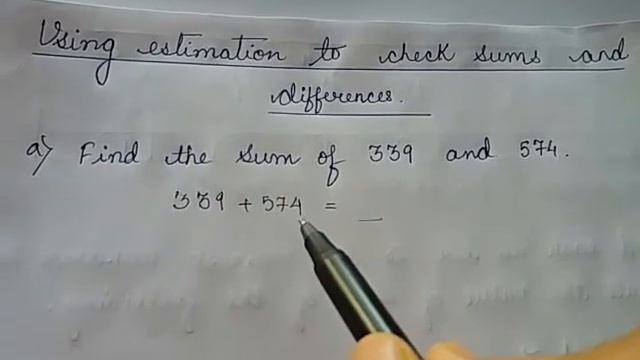 Using estimation to check sums and
differences.
a) Find the sum of 339 and 574.
339 + 574 = _